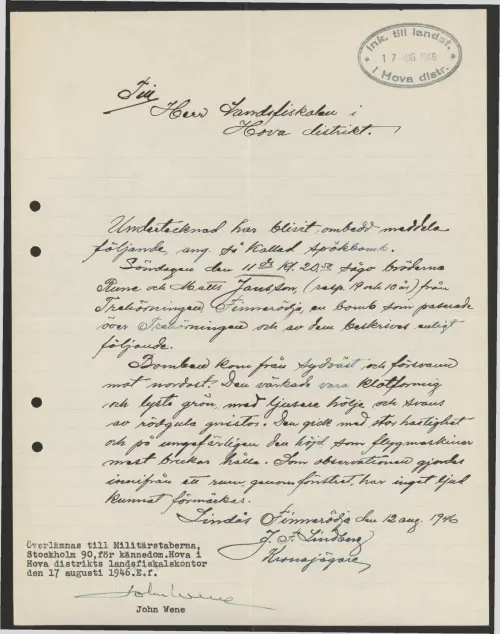 Ink. till landsf.
17 AUG 1946
i Hova distr.
Till
Herr Landsfiskalen i
Hova distrikt.
Undertecknad har blivit ombedd meddela
följande, ang. så kallad spökbomb.
Söndagen den 11 ds kl. 20,50 sågo bröderna
Rune och Matts Jansson, (resp. 19 och 10 år) från
Trehörningen, Finnerödja, en bomb som passerade
över Trehörningen och av dem beskrives enligt
följande.
Bomben kom från sydväst och försvann
mot nordost. Den värkade vara klotformig
och lyste grön, med ljusare hölje och svans
av rödgula gnistor. Den gick med stor hastighet
och på ungefärligen den höjd som flygmaskiner
mest bruka hålla. Som observationen gjordes
inifrån ett rum, genom fönstret, har inget ljud
kunnat förmärkas.
Lindås Finnerödja den 12 aug. 1946
J. F. Lindberg
Kronojägare
Överlämnas till Militärstaberna,
Stockholm 90, för kännedom. Hova i
Hova distrikts landsfiskalskontor
den 17 augusti 1946. E.f.
John Wene
John Wene